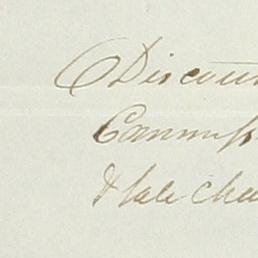 Discoun
Commiss
& Sale Cha